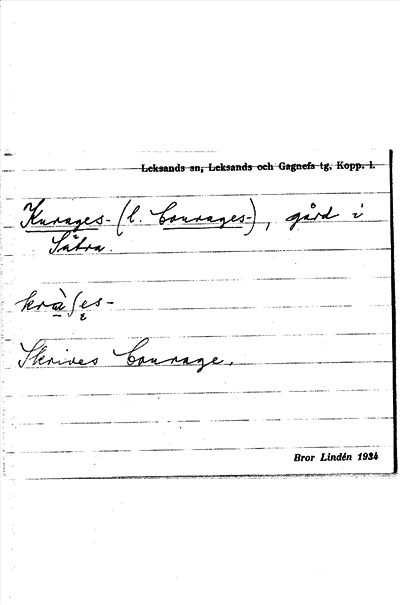 Leksands sn, Leksands och Gagnefs tg, Kopp. l.
Kurages- (l. Courages-), gård i
Sätra.
Skrives Courage.
Bror Lindén 1934